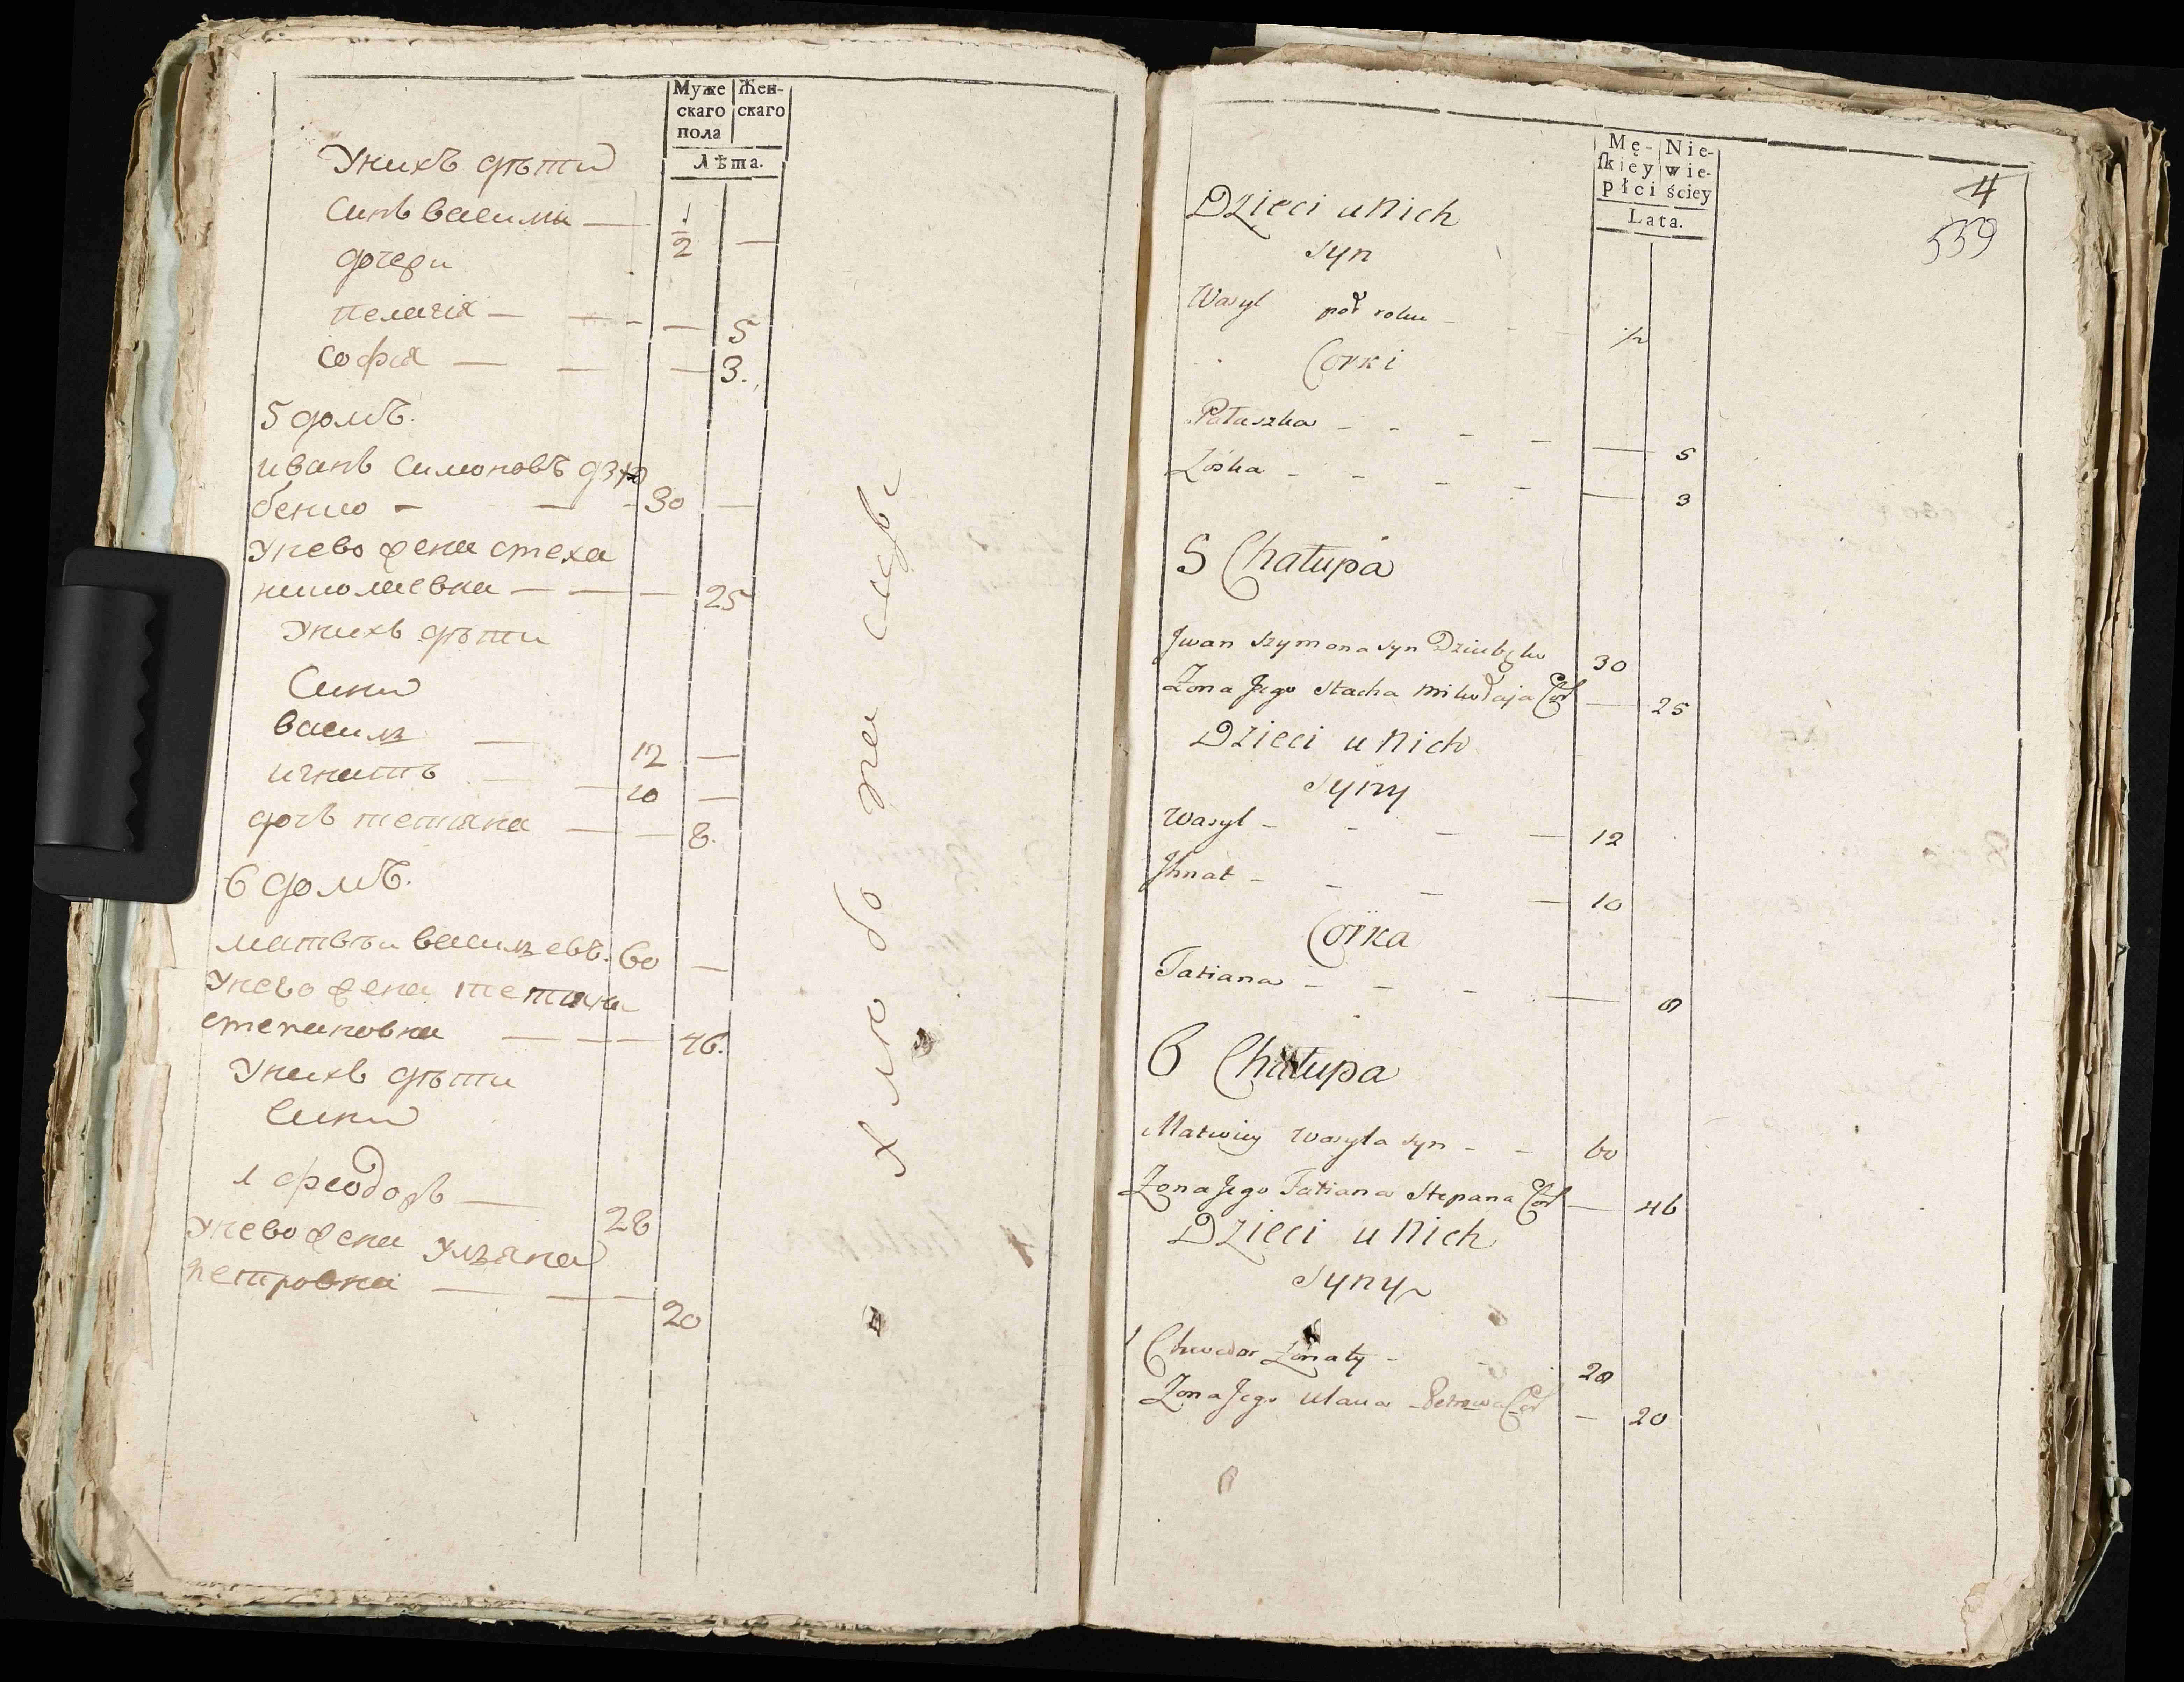 Муже
скаго
пола
Жен-
скаго
Лѣта.
Унихъ дѣти
Синъ василь — 1/2 —
дочери
пелагія — — 5
софія — — — 3.
5 домъ.
иванъ Симоновъ дзю
бенко — — 30 —
Унево жена стеха
николаевна — — — 25
Унихъ дѣти
Сини
василь — 12 —
игнатъ — — 10 —
дочъ тетяна — — 8.
6 домъ.
матвѣи васильевъ. 60 —
Унево жена тетяна
степановна — — — 46.
Унихъ дѣти
Сини
1 феодоръ — 28
Унево жена Ульяна
петровна — — — 20
Mę-
skiey
płci
Nie-
wie-
ściey
Lata.
4
559
Dzieci u Nich
syn
Wasyl poł roku - - - 1/2
Corki
Pałuszka - - - — — 5
Zośka - - - - — 3
5 Chałupa
Jwan Szymona syn Dziubęko 30
Zona Jego Stacha Mikołaja Cor — 25
Dzieci u Nich
syny
Wasyl - - - — 12
Jhnat - - - — 10
Corka
Tatiana - - - — 8
6 Chałupa
Matwiey Wasyla syn - - 60
Zona Jego Tatiana Stepana Cor — 46
Dzieci u Nich
syny
1 Chwedor Zonaty - - 28
Zona Jego Ulana Petrowa Cor — 20